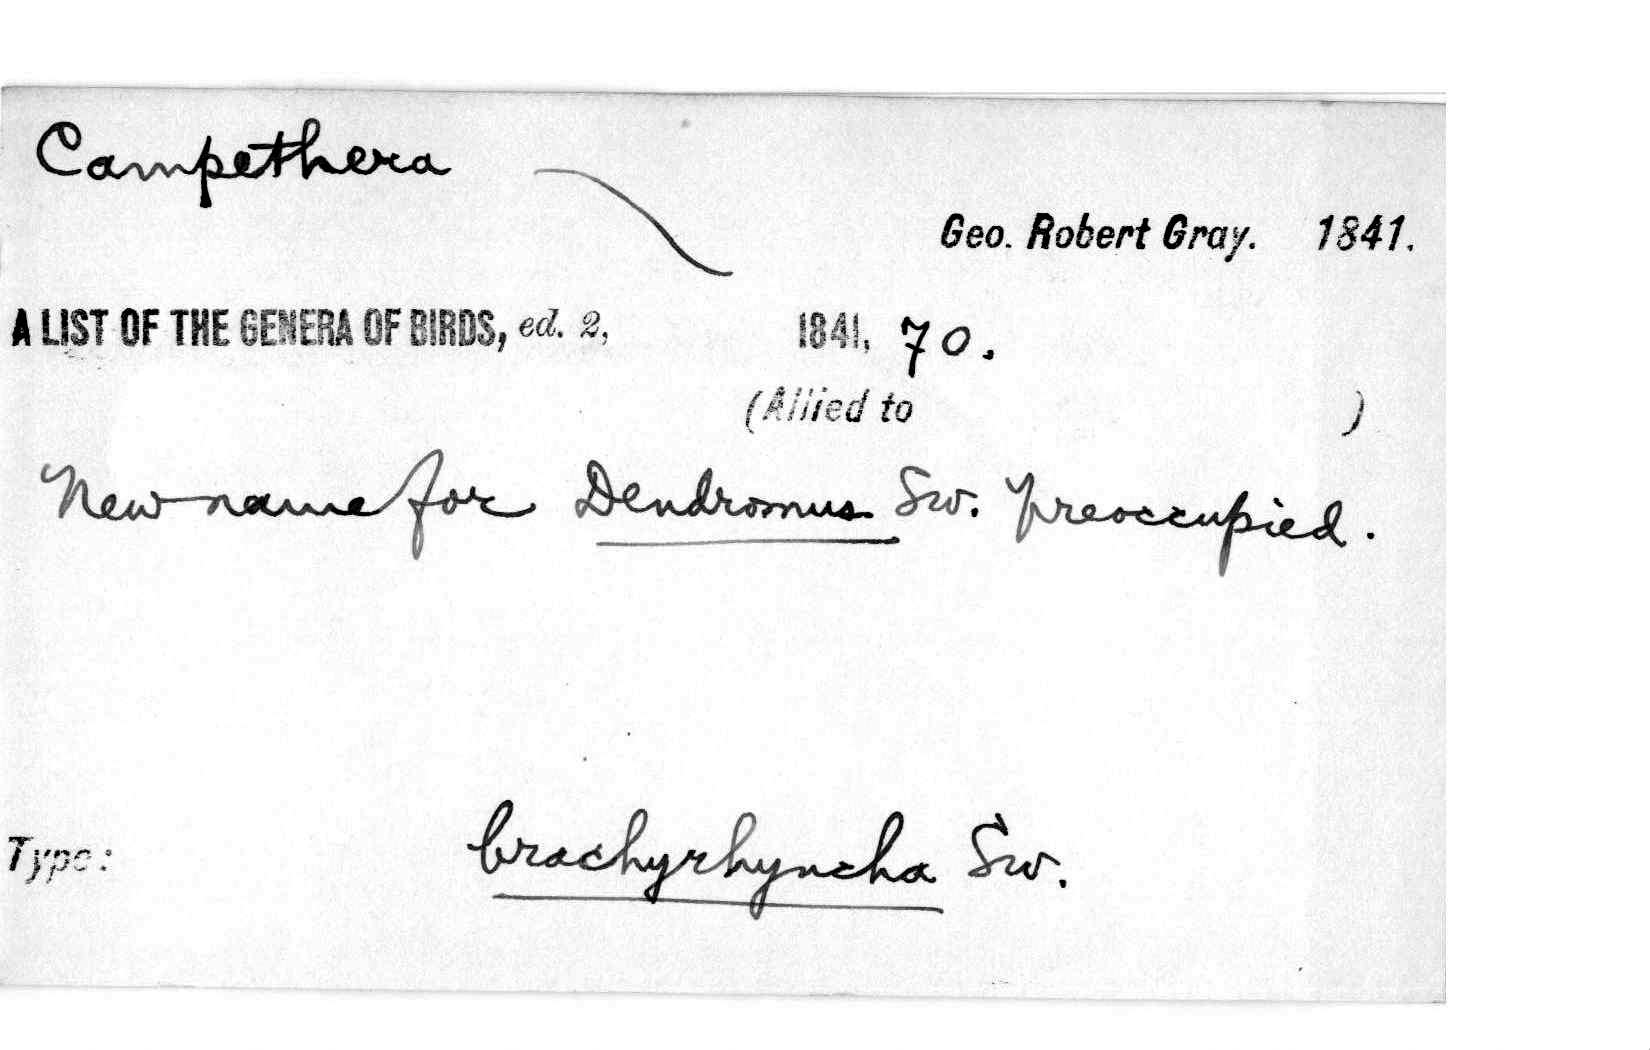 Campethera
Geo. Robert Gray. 1841.
A LIST OF THE GENERA OF BIRDS, ed. 2, 1841, 70.
(Allied to )
New name for Dendromus Sw. preoccupied.
Type: brachyrhyncha Sw.